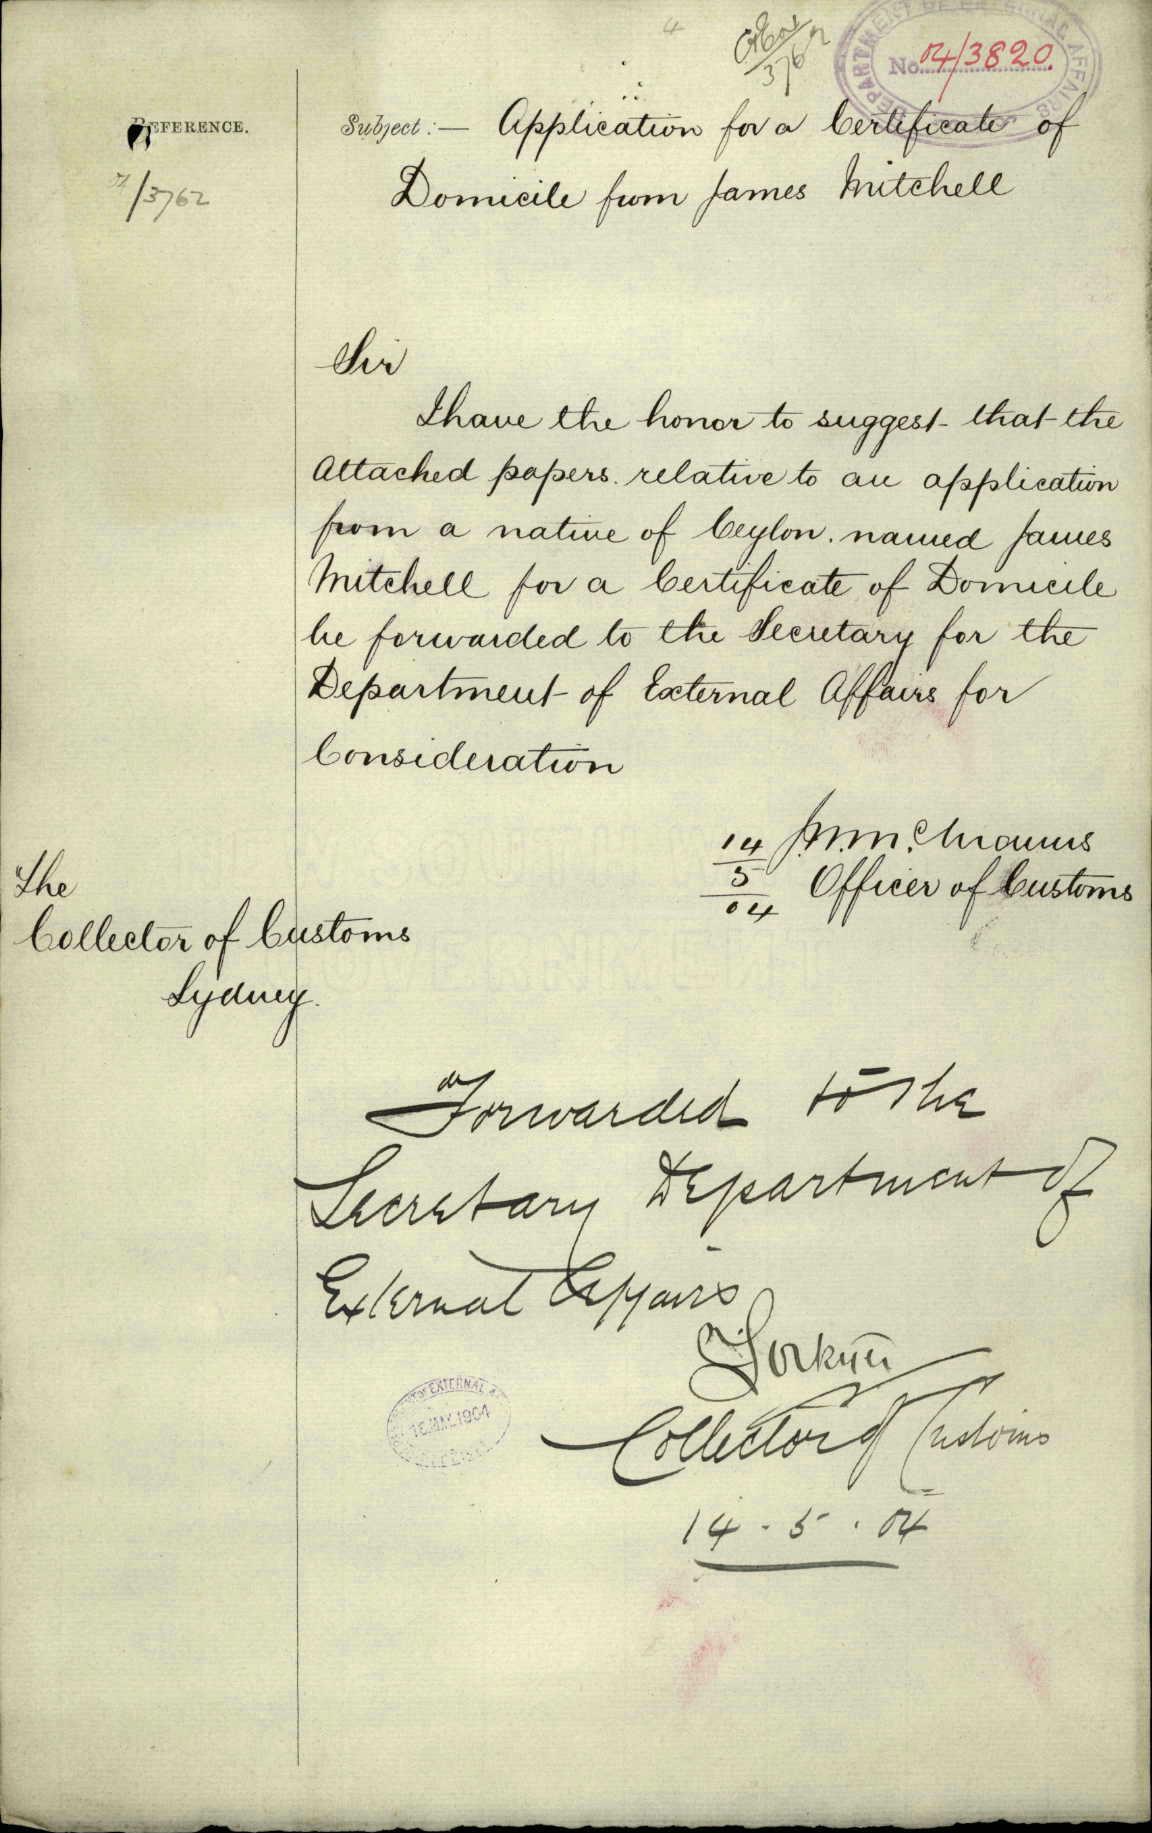 4
3762
DEPARTMENT OF EXTERNAL AFFAIRS
No. 04/3820.
REFERENCE.
/3762
Subject:— Application for a Certificate of
Domicile from James Mitchell
Sir
I have the honor to suggest that the
Attached papers. relative to an application
from a native of Ceylon. named James
Mitchell for a Certificate of Domicile
be forwarded to the Secretary for the
Department of External Affairs for
Consideration
14
5
04
Officer of Customs
The
Collector of Customs
Sydney.
Forwarded to the
Secretary Department of
External Affairs
Collector of Customs
14.5.04
EXTERNAL
16 MAY 1904